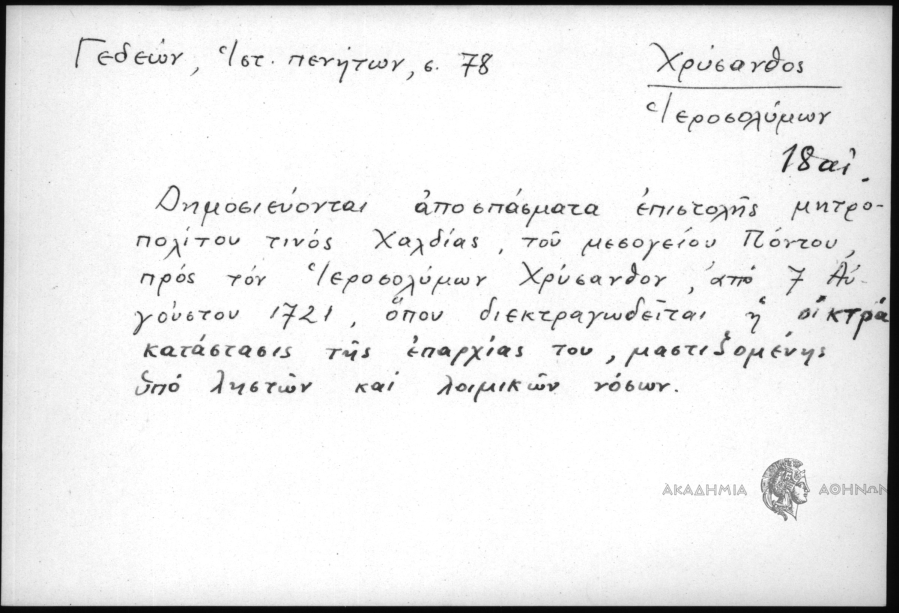 Γεδεών, Ἱστ. πενήτων, σ. 78
Χρύσανθος
Ἱεροσολύμων
18 αἰ.
Δημοσιεύονται ἀποσπάσματα ἐπιστολῆς μητρο-
πολίτου τινός Χαλδίας, τοῦ μεσογείου Πόντου,
πρός τόν Ἱεροσολύμων Χρύσανθον, ἀπό 7 Αὐ-
γούστου 1721, ὅπου διεκτραγωδεῖται ἡ οἰκτρά
κατάστασις τῆς ἐπαρχίας του, μαστιζομένης
ὑπό ληστῶν καί λοιμικῶν νόσων.
ΑΚΑΔΗΜΙΑ ΑΘΗΝΩΝ